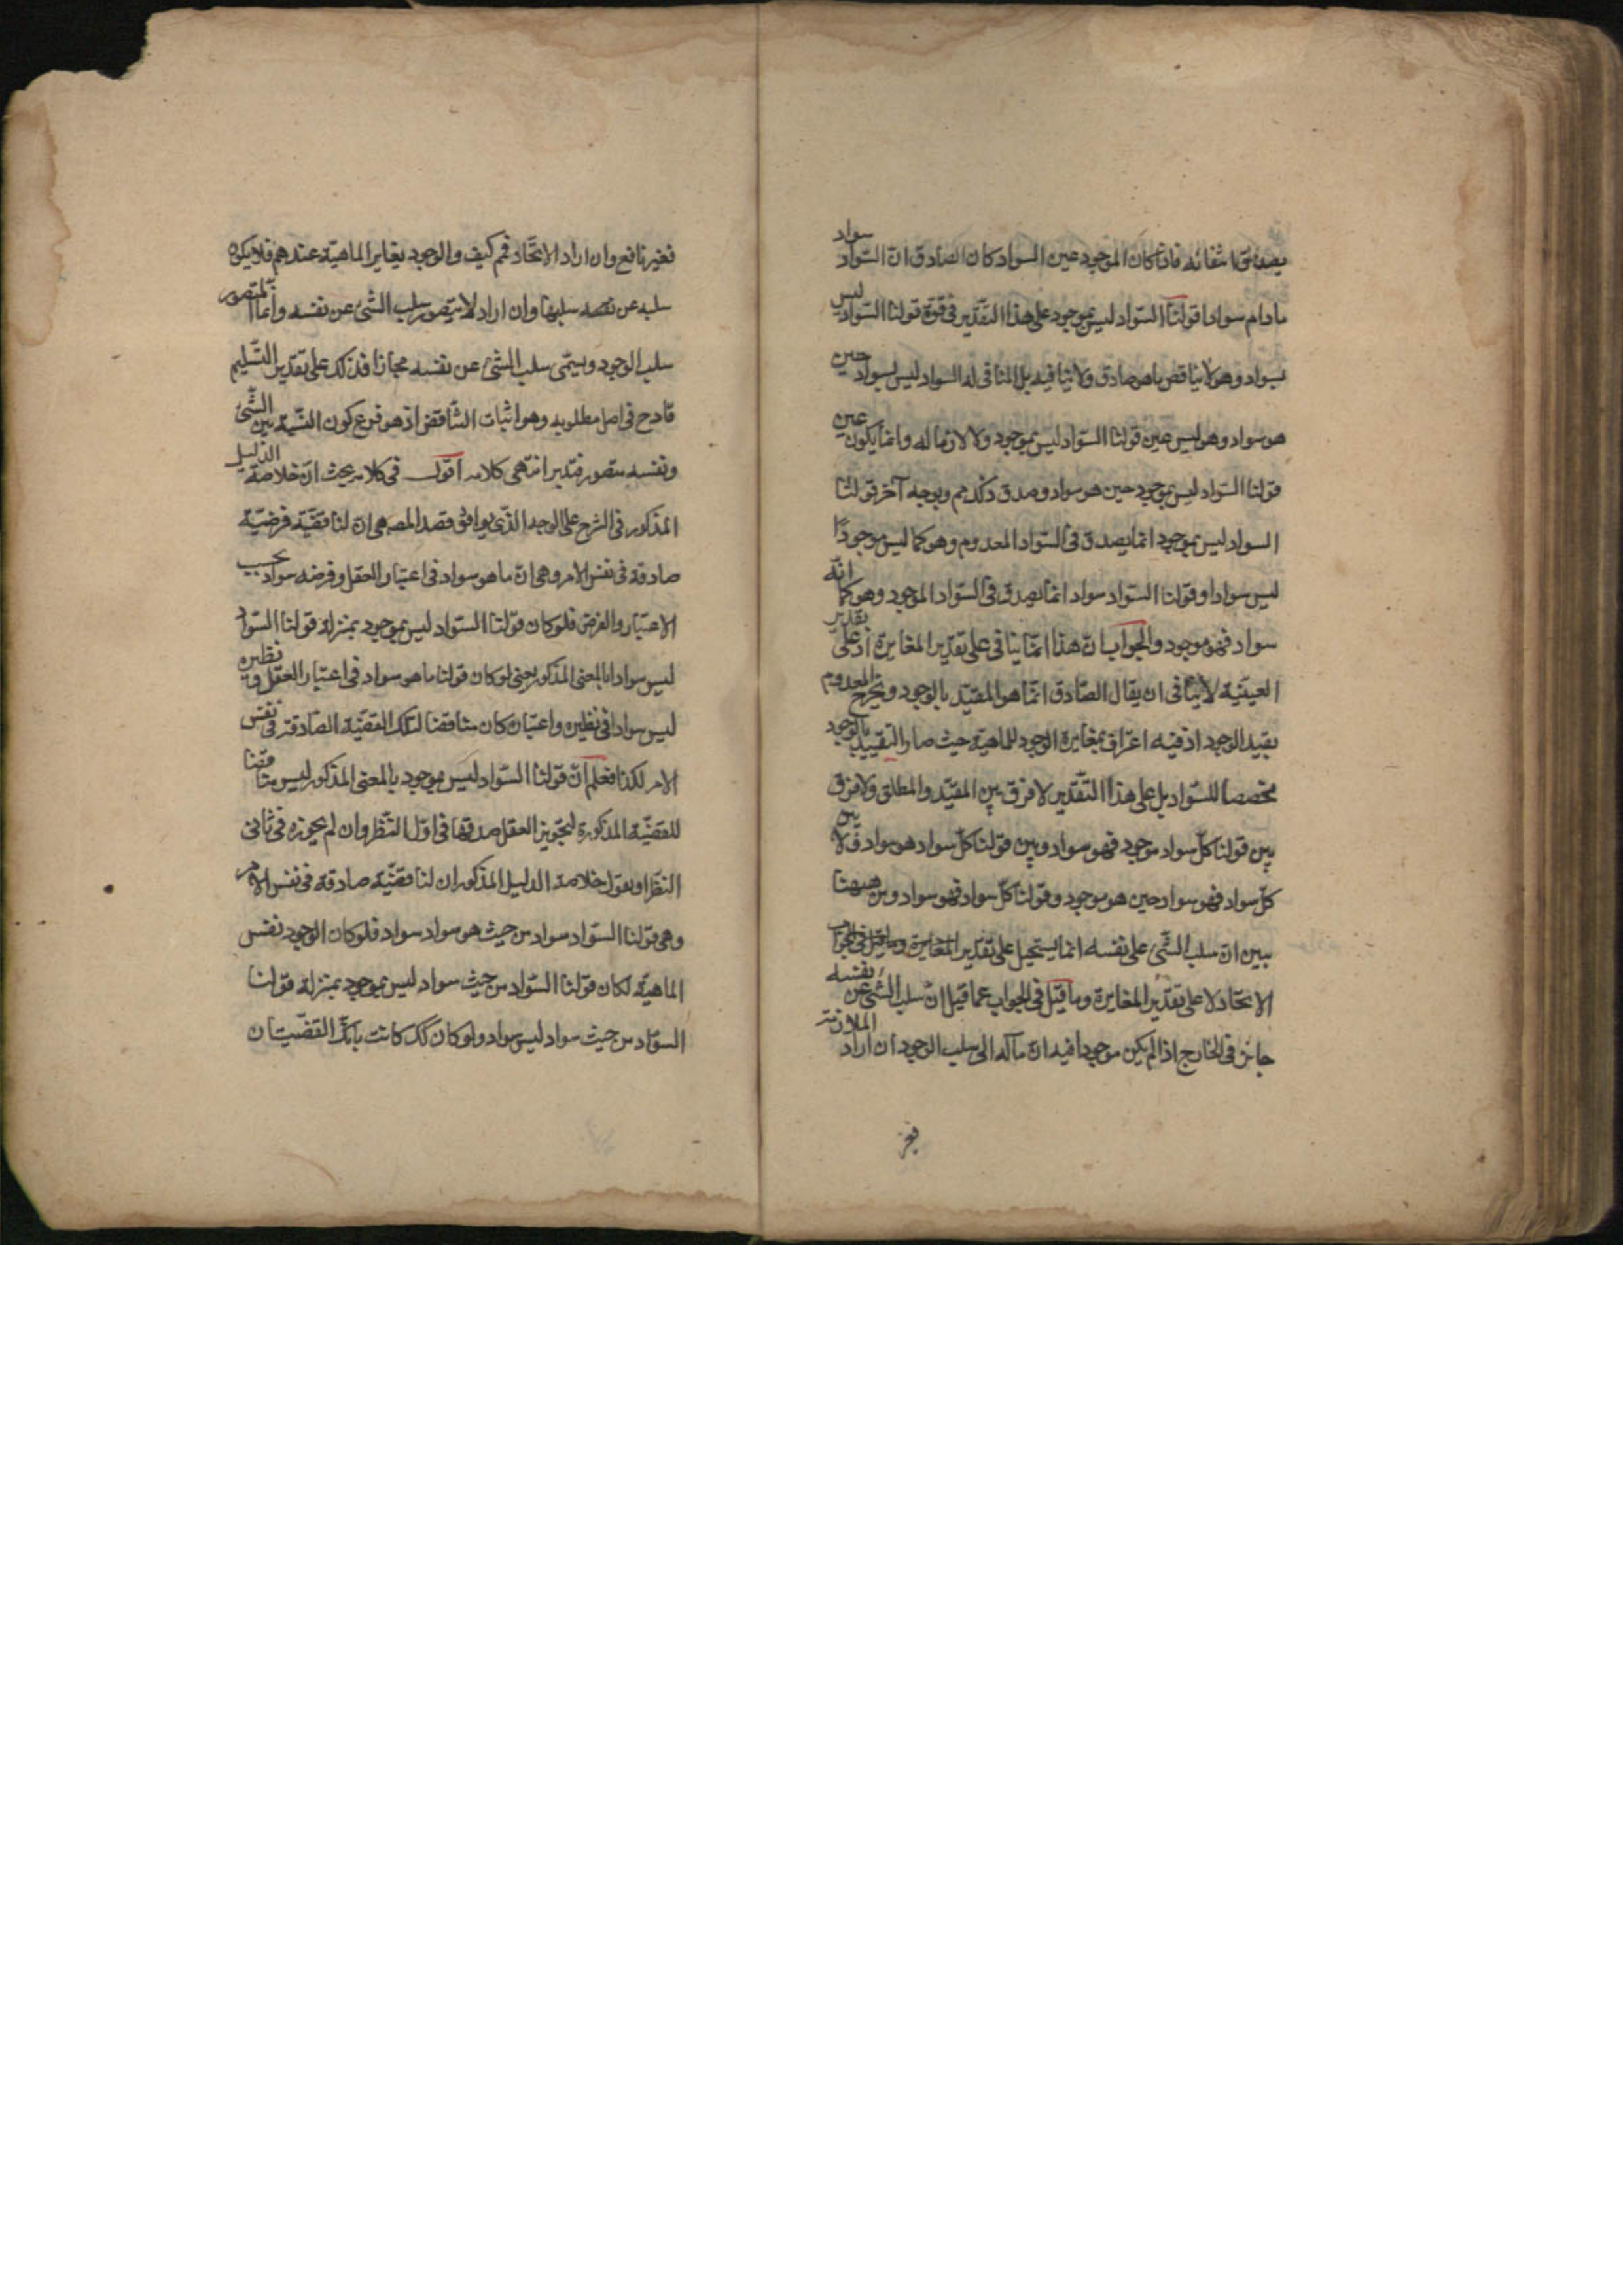 يصدق انتفائه فاذا كان الموجود عين السواد كان الصادق ان السّواد سواد
مادام سوادا قولنا السّواد ليس بموجود على هذا التقدير فى قوة قولنا السّواد ليس
بسواد وهو لا يناقض ما هو صادق ولا ينافيه بل المنافى له السواد ليس بسواد حين
هو سواد وهو ليس عين قولنا السّواد ليس بموجود ولا لازما له وانما يكون عين
قولنا السّواد ليس بموجود حين هو سواد وصدق ذلك مم وبوجه آخر قولنا
السواد ليس بموجود انما يصدق فى السّواد المعدوم وهو كما ليس موجودًا
ليس سوادا وقولنا السّواد سواد انما يصدق فى السّواد الموجود وهو كما انّه
سواد فهو موجود والجواب ان هذا انّما ينافى على تقدير المغايرة اذ على تقدير
العينيّة لا ينافى ان يقال الصّادق انّما هو المقيّد بالوجود ويخرج المعدوم
بقيد الوجود اذ فيه اعتراف بمغايرة الوجود للماهية حيث صار التقييد بالوجود
مخصصا للسّواد بل على هذا التّقدير لا فرق بين المقيّد والمطلق ولا فرق
بين قولنا كلّ سواد موجود فهو سواد وبين قولنا كلّ سواد هو سواد ولا بين
كلّ سواد فهو سواد حين هو موجود وقولنا كلّ سواد فهو سواد ومن ههنا
يبين ان سلب الشّئ على نفسه انما يستحيل على تقدير المغايرة وما قيل فى الجواب
الاتحاد لا على تقدير المغايرة وما قيل فى الجواب عما قيل انّ سلب الشّئ عن نفسه
جائز فى الخارج اذا لم يكن موجودا فيه ان مآله الى سلب الوجود ان اراد الملازمة
فغير
فغير نافع وان اراد الاتّحاد فمم كيف والوجود يغاير الماهيّة عندهم فلا يكون
سلبه عن نفسه سلبها وان اراد لا يتصور سلب الشئ عن نفسه وانّما المتصور
سلب الوجود ويسمّى سلب الشئ عن نفسه مجازا فذلك على تقدير التّسليم
قادح فى اصل مطلوبه وهو اثبات التّناقض اذ هو فرع كون النسبة بين الشّئ
ونفسه متصور فتدبر انتهى كلامه اقول فى كلامه بحث انّ خلاصة الدّليل
المذكور فى الشرح على الوجه الذى يوافق قصد المصـ هى ان لنا قضيّة فرضيّة
صادقة فى نفس الامر وهى انّ ما هو سواد فى اعتبار العقل وفرضه سواد بحسب
الاعتبار والفرض فلو كان قولنا السّواد ليس بموجود بمنزلة قولنا السّواد
ليس سوادا بالمعنى المذكور يعنى لو كان قولنا ما هو سواد فى اعتبار العقل ونظره
ليس سوادا فى نظره واعتباره كان مناقضا لتلك القضيّة الصّادقة فى نفس
الامر لكنا نعلم انّ قولنا السّواد ليس بموجود بالمعنى المذكور ليس مناقضا
للقضيّة المذكورة لتجويز العقل صدقها فى اوّل النّظر وان لم يجوزه فى ثانى
النظر او نقول خلاصة الدليل المذكور ان لنا قضيّة صادقة فى نفس الامر
وهى قولنا السّواد سواد من حيث هو سواد سواد فلو كان الوجود نفس
الماهيّة لكان قولنا السّواد من حيث سواد ليس بموجود بمنزلة قولنا
السوّاد من حيث سواد ليس سواد ولو كان كك كانت القضيّتان